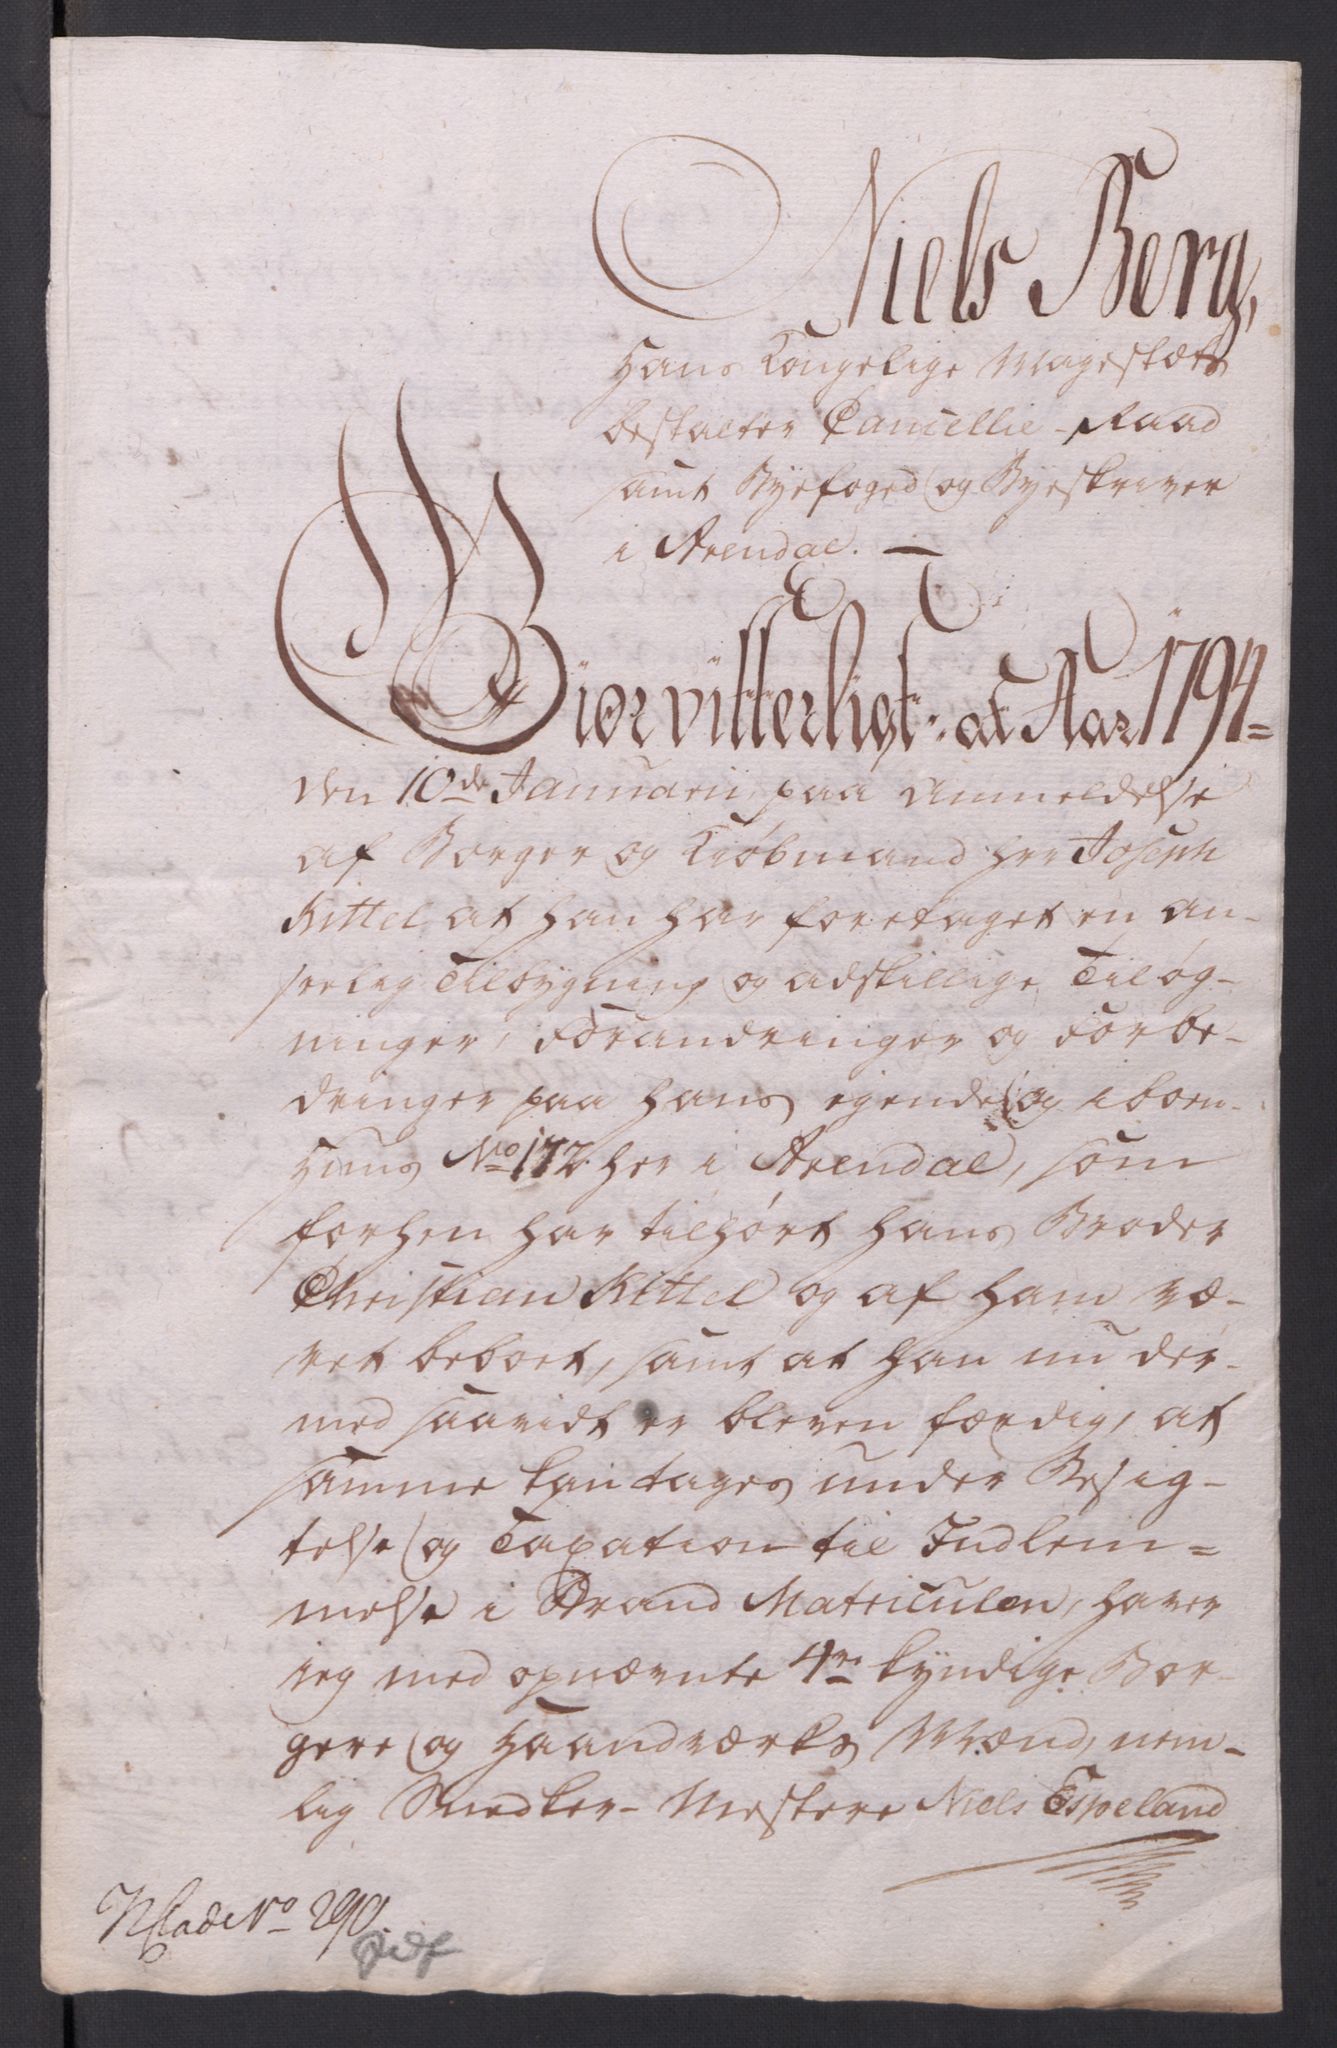 Niels Berg,
Hans Kongelige Mayestæts
bestalter Cancellie-Raad
samt Byefoged og Byeskriver
i Arendal. —
Giør vitterligt: at Aar 1794 =
den 10de Januarii, paa Anmeldelse
af Borger og Kiøbmand Hrr Joseph
Kittel, at han har foretaget en an-
seelig Tilbygning og adskillige Tiløg-
ninger, Forandringer og Forbe-
dringer paa hans egende og iboen-
Huus No 172. her i Arendal, som
forhen har tilhørt hans Broder
Christian Kittel og af ham væ-
ret beboet, samt at han nu der-
med saavidt er bleven færdig, at
samme kan tages under Besig-
telse og Taxation til Indlem=
melse i Brand Matriculen, haver
jeg med opnævnte 4re kyndige Bor-
gere og Haandværks Mænd, nem-
lig Snedker-Mestere Niels Espeland
No 290.